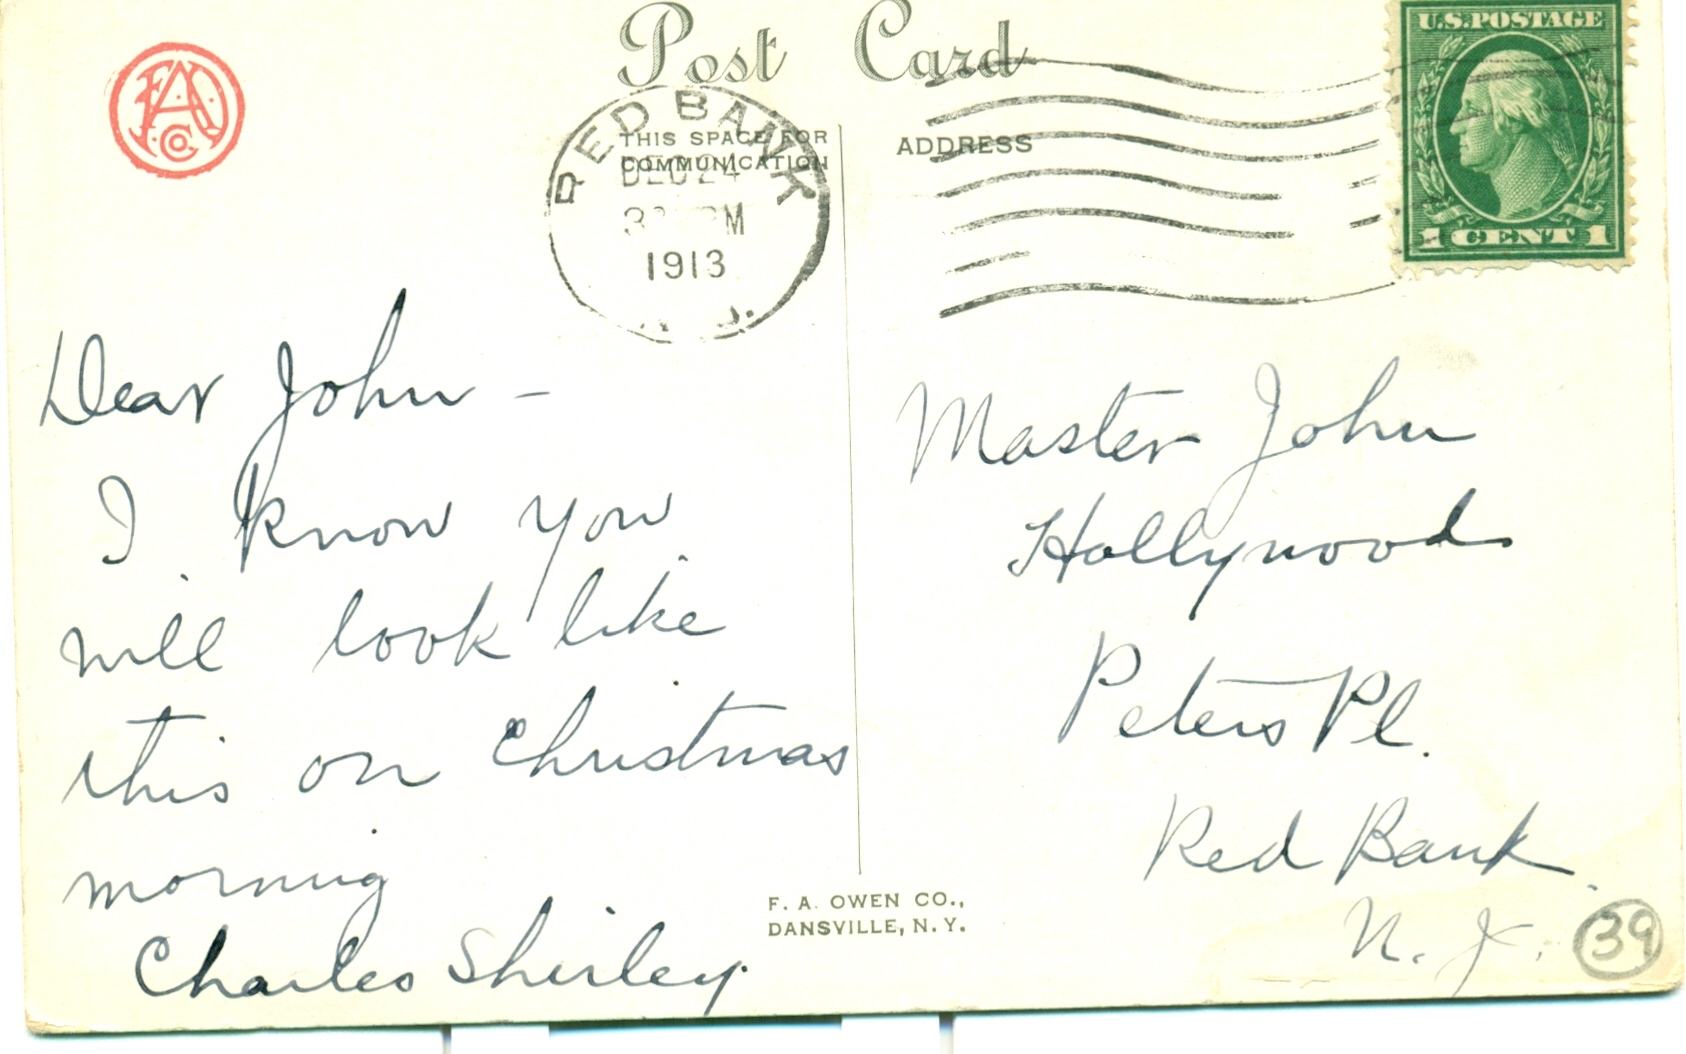 Post Card
U.S. POSTAGE
1 CENT 1
F A O Co
RED BANK
DEC 24
1913
N. J.
THIS SPACE FOR
COMMUNICATION
ADDRESS
Dear John -
I know you
will look like
this on Christmas
morning
Charles Shirley.
Master John
Hollywood
Peters Pl.
Red Bank
N. J.
F. A. OWEN CO.,
DANSVILLE, N. Y.
39